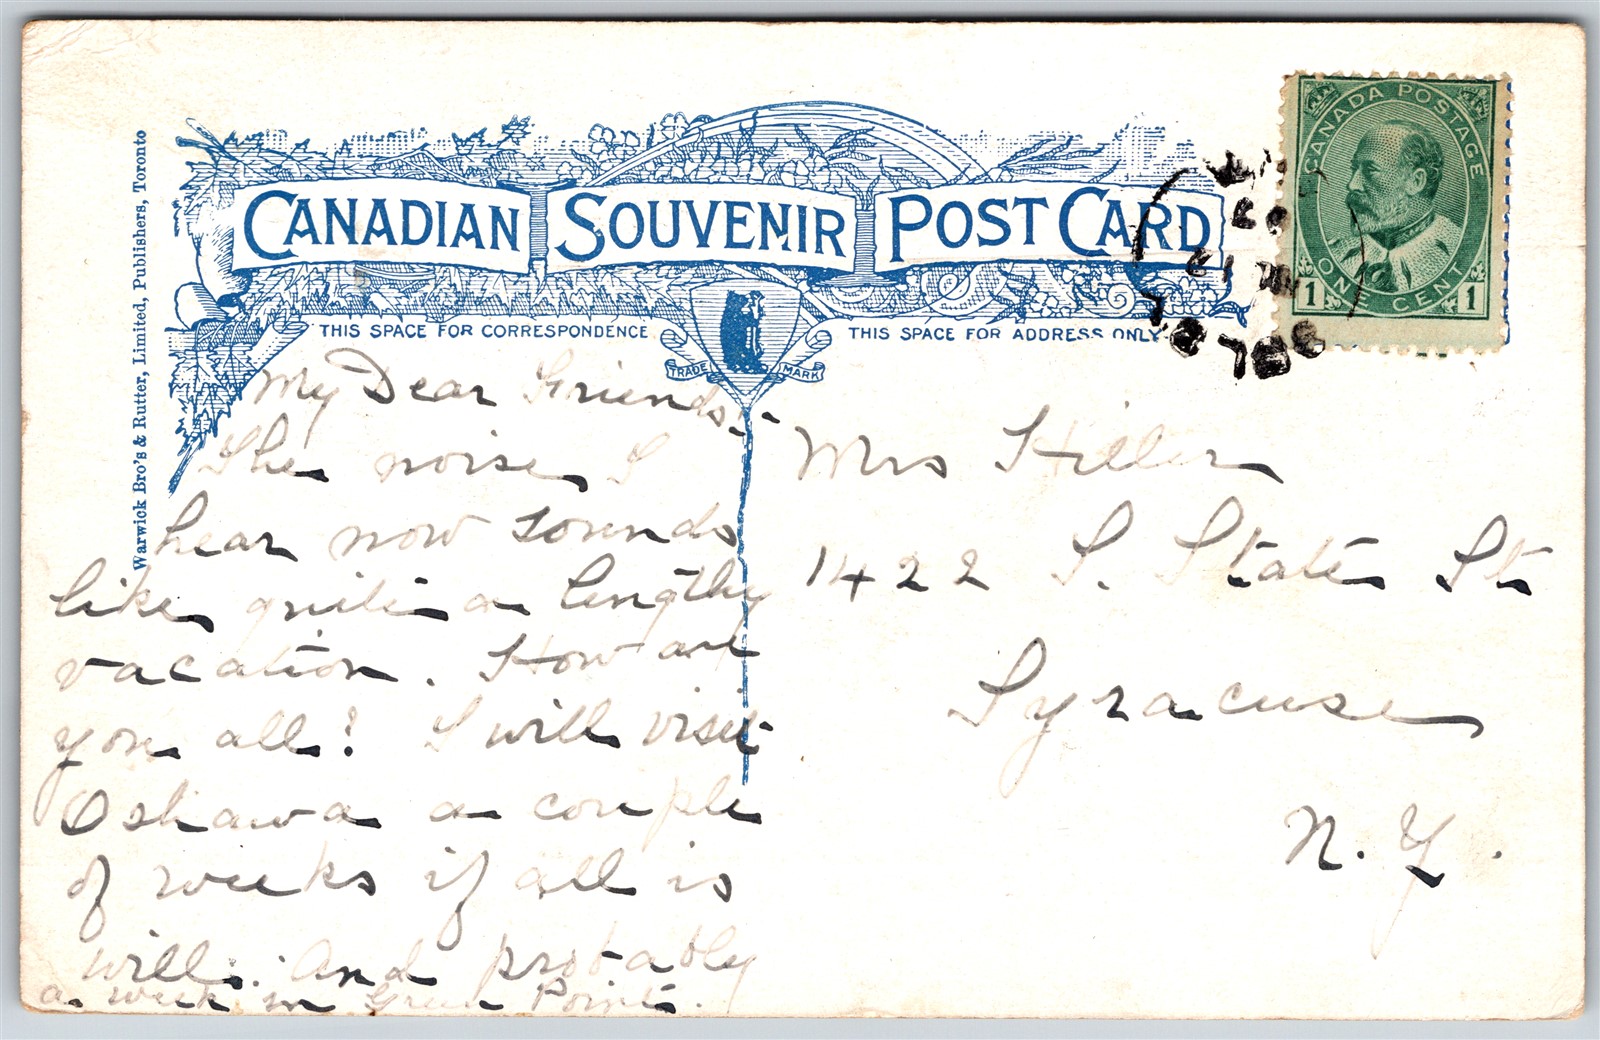 CANADIAN SOUVENIR POST CARD
Warwick Bro's & Rutter, Limited, Publishers, Toronto
THIS SPACE FOR CORRESPONDENCE
THIS SPACE FOR ADDRESS ONLY
TRADE MARK
CANADA POSTAGE
ONE CENT
1 1
My Dear Friends:-
The noise I
hear now sounds
like quite a lengthy
vacation. How are
you all? I will visit
Oshawa a couple
of weeks if all is
will. And probably
a week in Green Point.
Mrs Hiller
1422 S. State St
Syracuse
N.Y.